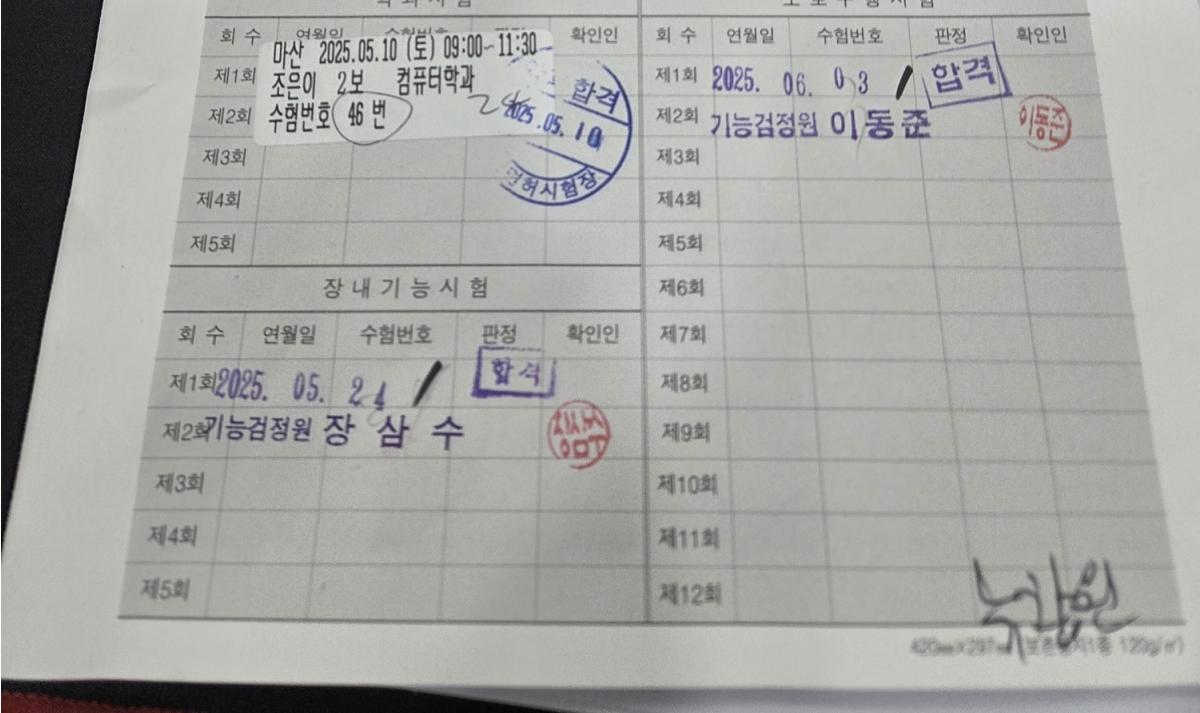 학과시험
회 수 연월일 수험번호 확인인
마산 2025.05.10 (토) 09:00~11:30
제1회 조은이 2보 컴퓨터학과
제2회 수험번호 46 번
합격
2025.05.10
면허시험장
제3회
제4회
제5회
장내기능시험
회 수 연월일 수험번호 판정 확인인
제1회 2025. 05. 24 합격
제2회 기능검정원 장삼수
제3회
제4회
제5회
도로주행시험
회 수 연월일 수험번호 판정 확인인
제1회 2025. 06. 03 합격
제2회 기능검정원 이동준 이동준
제3회
제4회
제5회
제6회
제7회
제8회
제9회
제10회
제11회
제12회
420㎜×297㎜
120g/㎡)